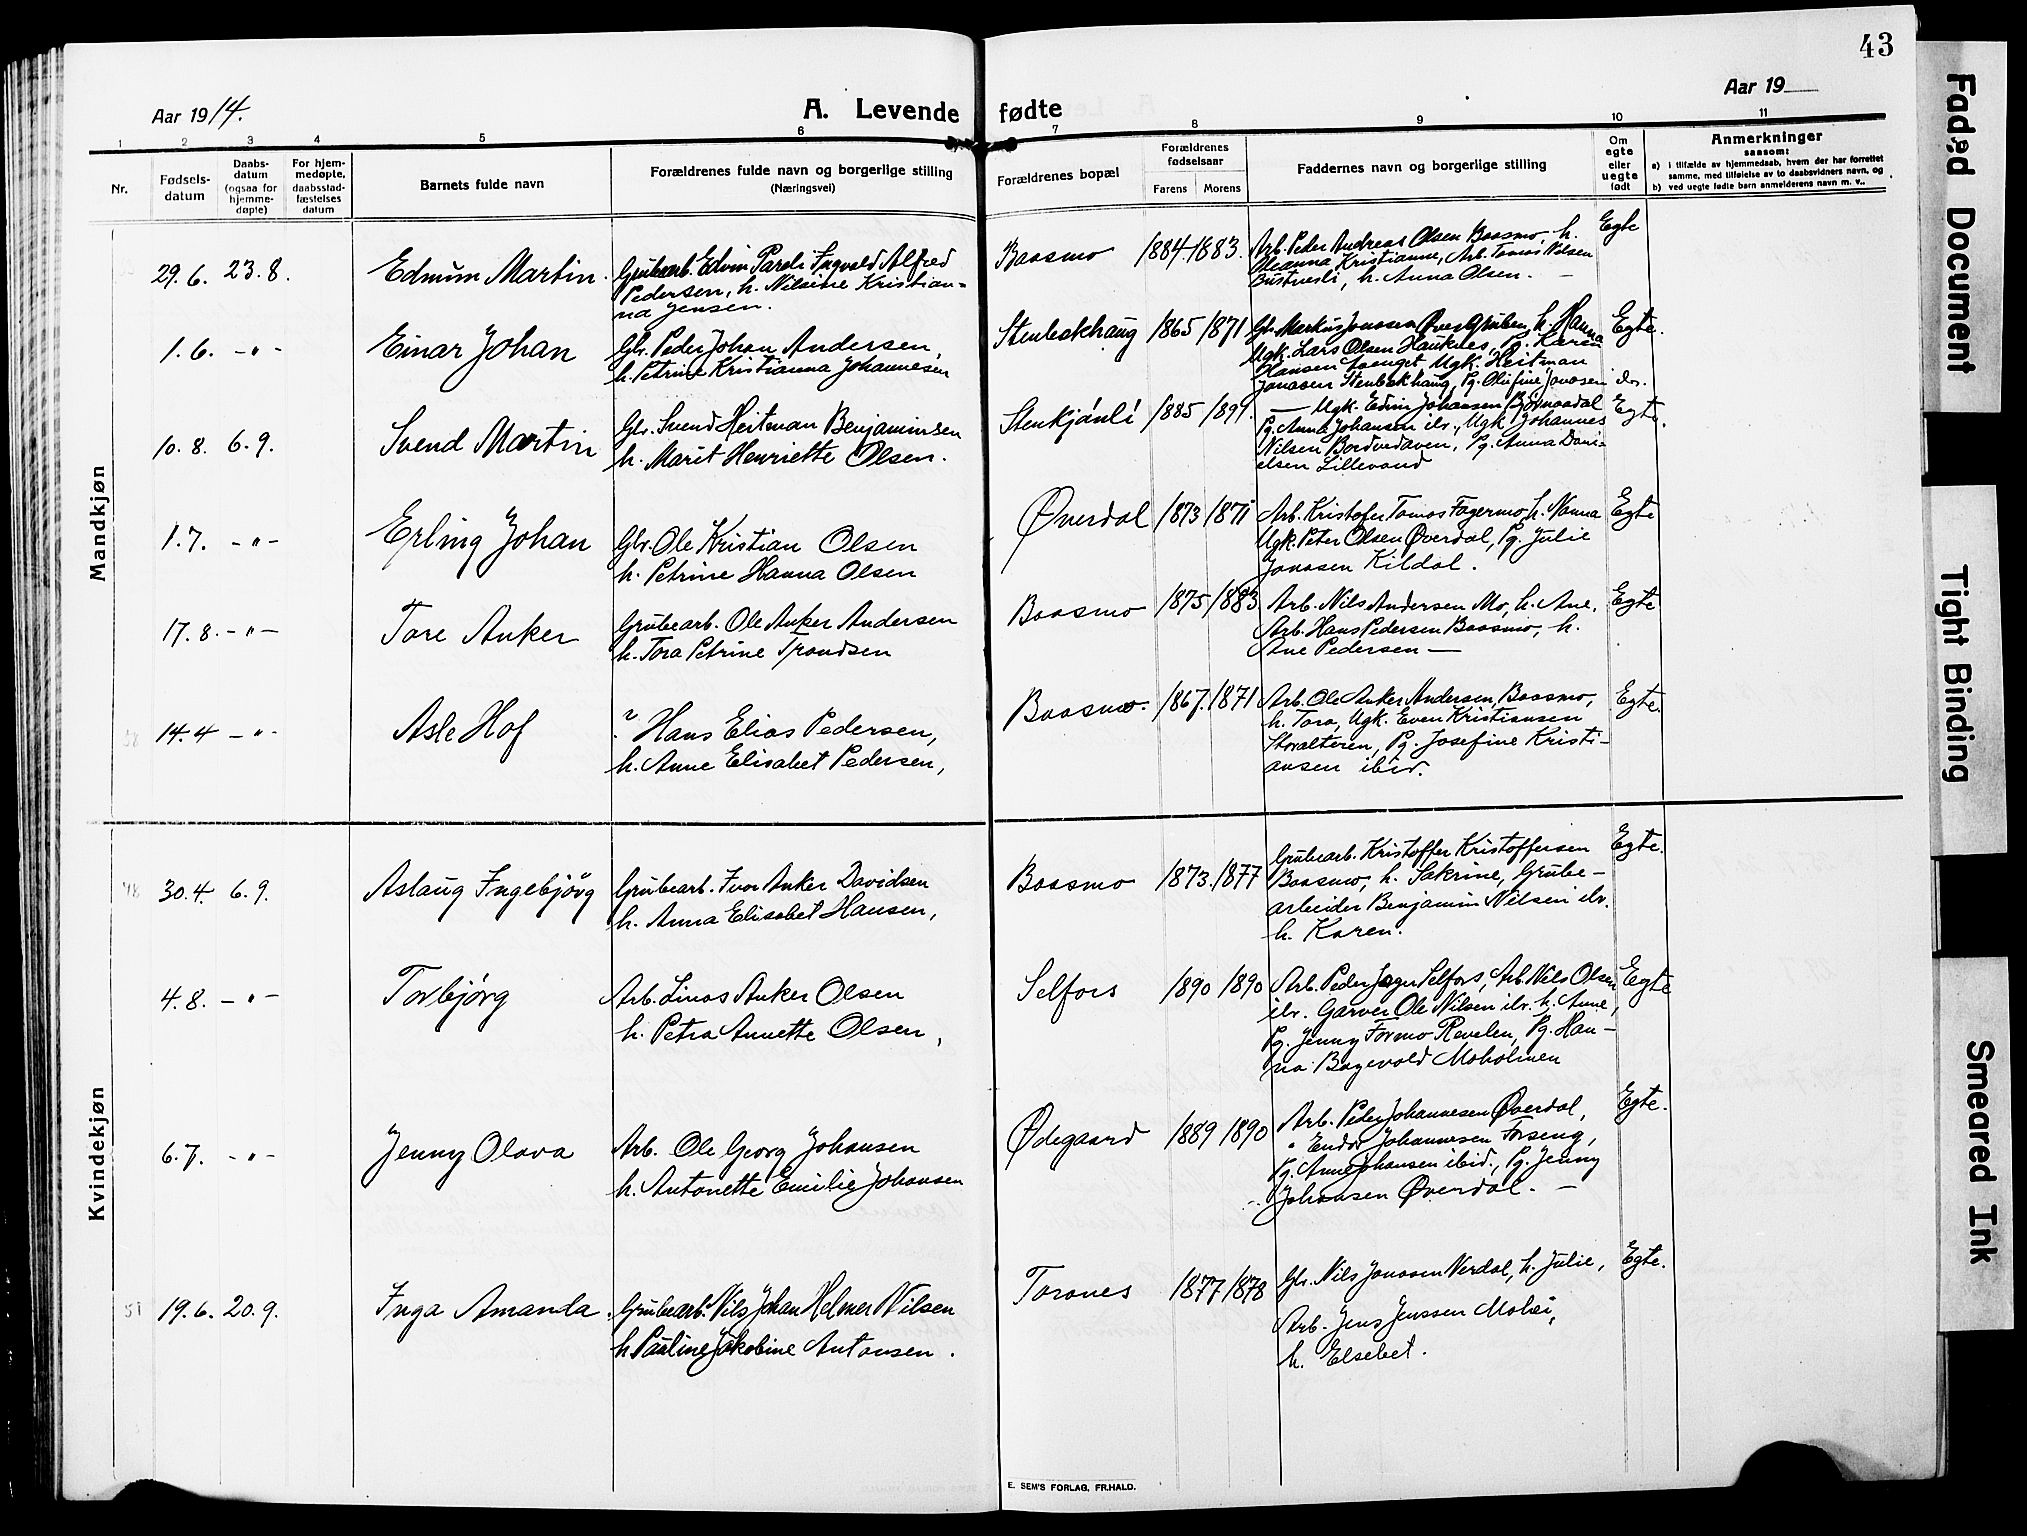 43
Aar 1914.
A. Levende fødte
Aar 19
1 2 3 4 5 6 7 8 9 10 11
Nr.
Fødsels-
datum
Daabs-
datum
(ogsaa for
hjemme-
døpte)
For hjem-
medøpte,
daabsstad-
fæstelses
datum
Barnets fulde navn
Forældrenes fulde navn og borgerlige stilling
(Næringsvei)
Forældrenes bopæl
Forældrenes
fødselsaar
Farens Morens
Faddernes navn og borgerlige stilling
Om
egte
eller
uegte
født
Anmerkninger
saasom:
a) i tilfælde av hjemmedaab, hvem der har forrettet
samme, med tilføielse av to daabsvidners navn, og
b) ved uegte fødte børn anmelderens navn m. v..
Mandkjøn
29.6. 23.8. Edmum Martin.
Grubearb. Edvin Paroli Ingvald Alfred
Pedersen, h. Nilsine Kristian-
na Jensen.
Baasmo 1884. 1883.
Arb. Peder Andreas Olsen Baasmo, h.
Oleanna Kristianne, Arb. Tomas Nilsen
Bustnesli, h. Anna Olsen. —
Egte
1.6. -"- Einar Johan
Gbr. Peder Johan Andersen,
h. Petrine Kristianna Johannesen
Stenbekhaug 1865 1871
Gbr. Markus Jonasen Øver Gruben, h. Hanna
Ugk. Lars Olsen Hauknes, Pg. Karen
Hansen Ugk. Heitman
Jonasen Stenbekhaug, Pg. Olufine Jonasen ibr.
Egte.
10.8. 6.9. Svend Martin
Gbr. Svend Heitman Benjaminsen
h. Marit Henriette Olsen.
Stenkjønli 1885 1891.
— Ugk. Edvin Johansen Bjørnaadal
Pg. Anna Johansen ibr., Ugk Johannes
Nilsen Bordvedaven, Pg. Anna Dani-
elsen Lillevand
Egte.
1.7. -"- Erling Johan
Gbr. Ole Kristian Olsen
h. Petrine Hanna Olsen
Øverdal 1873 1871
Arb. Kristofer Tomas Fagermo, h. Nanna
Ugk. Peter Olsen Øverdal, Pg. Julie
Jonasen Kildal.
Egte
17.8. -"- Tore Anker
Grubearb. Ole Anker Andersen
h. Tora Petrine Trondsen
Baasmo 1875 1883
Arb. Nils Andersen Mo, h. Ane,
Arb. Hans Pedersen Baasmo, h.
Ane Pedersen —
Egte
14.4 -"- Asle Hof
? Hans Elias Pedersen,
h. Anne Elisabet Pedersen,
Baasmo. 1867. 1871
Arb. Ole Anker Andersen, Baasmo,
h. Tora, Ugk. Even Kristiansen
Storalteren, Pg. Josefine Kristi-
ansen ibid.
Egte.
Kvindekjøn
48 30.4 6.9. Aslaug Ingebjørg
Grubearb. Ivar Anker Davidsen
h. Anna Elisabet Hansen,
Baasmo 1873. 1877
Grubearb. Kristoffer Kristoffersen
Baasmo, h. Sakrine, Grube-
arbeider Benjamin Nilsen ibr.
h. Karen.
Egte.
4.8. -"- Torbjørg
Arb. Linas Anker Olsen
h. Petra Annette Olsen,
Selfors 1890 1890
Arb. Peder Jager Selfors, Arb. Nils Olsen
ibr. Garver Ole Nilsen ibr. h. Anne,
Pg. Jenny Formo Revelen, Pg. Han-
na Bagevold Moholmen
Egte
6.7. -"- Jenny Olava
Arb. Ole Georg Johansen
h. Antonette Emilie Johansen
Ødegaard 1889 1890
Arb. Peder Johannesen Øverdal,
" Endor Johannesen Forseng,
Pg. Anne Johansen ibid., Pg. Jenny
Johansen Øverdal. —
Egte.
51 19.6. 20.9. Inga Amanda.
Grubearb. Nils Johan Helmer Nilsen
h. Pauline Jakobine Antonsen.
Toranes 1877 1878
Gbr. Nils Jonasen Verdal, h. Julie,
Arb. Jens Jenssen Mohei,
h. Elsebet.
Egte.
E. SEM'S FORLAG, FR.HALD.
Faded Document
Tight Binding
Smeared Ink